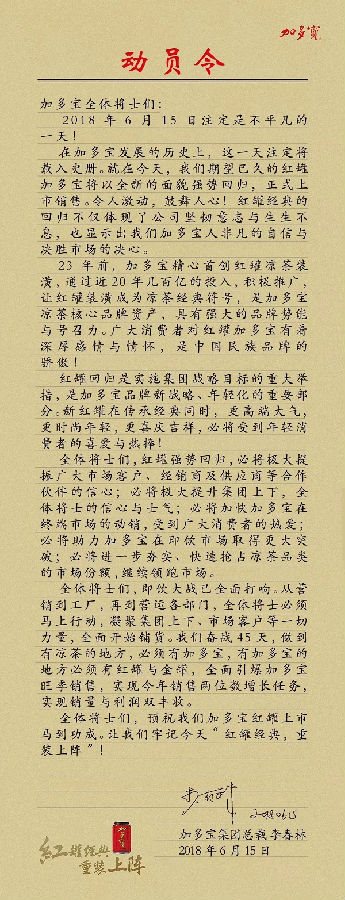 加多宝
动员令
加多宝全体将士们：
2018年6月15日注定是不平凡的
一天！
在加多宝发展的历史上，这一天注定将
载入史册。就在今天，我们期望已久的红罐
加多宝将以全新的面貌强势回归，正式上
市销售。令人激动，鼓舞人心！红罐经典的
回归不仅体现了公司坚韧意志与生生不
息，也显示出我们加多宝人非凡的自信与
决胜市场的决心。
23年前，加多宝精心首创红罐凉茶装
潢，通过近20年几百亿的投入，积极推广，
让红罐装潢成为凉茶经典符号，是加多宝
凉茶核心品牌资产，具有强大的品牌势能
与号召力。广大消费者对红罐加多宝有着
深厚感情与情怀，是中国民族品牌的
骄傲！
红罐回归是实施集团战略目标的重大举
措，是加多宝品牌新战略、年轻化的重要部
分。新红罐在传承经典同时，更高端大气，
更时尚年轻，更喜庆吉祥，必将受到年轻消
费者的喜爱与热捧！
全体将士们，红罐强势回归，必将极大提
振广大市场客户、经销商及供应商等合作
伙伴的信心；必将极大提升集团上下，全
体将士的信心与士气；必将加快加多宝在
终端市场的动销，受到广大消费者的热爱；
必将助力加多宝在即饮市场取得更大突
破；必将进一步夯实、快速抢占凉茶品类
的市场份额，继续领跑市场。
全体将士们，即饮大战已全面打响。从营
销到工厂，再到营运各部门，全体将士必须
马上行动，凝聚集团上下、市场客户等一切
力量，全面开始铺货。我们奋战45天，做到
有凉茶的地方，必须有加多宝，有加多宝的
地方必须有红罐与金罐，全面引爆加多宝
旺季销售，实现今年销售两位数增长任务，
实现销量与利润双丰收。
全体将士们，预祝我们加多宝红罐上市
马到功成。让我们牢记今天“红罐经典，重
装上阵”！
加多宝集团总裁李春林
2018年6月15日
红罐经典
重装上阵